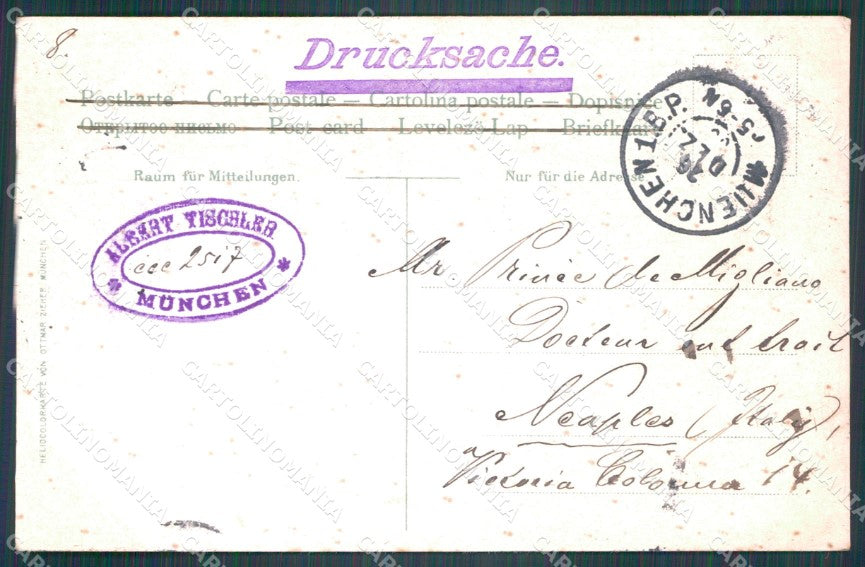 8.
Drucksache.
Postkarte — Carte postale — Cartolina postale — Dopisnice
Post card — Levelező-Lap — Briefkaart
Raum für Mitteilungen.
Nur für die Adresse
MUENCHEN 1 B.P.
26
DEZ
5-6N
ALBERT TISCHLER
ccc 2517
* MÜNCHEN *
Mr Prince de Migliano
Docteur en droit
Neaples (Italy),
Victoria Colonna 14.
HELIOCOLORKARTE VON OTTMAR ZIEHER, MÜNCHEN
CARTOLINOMANIA